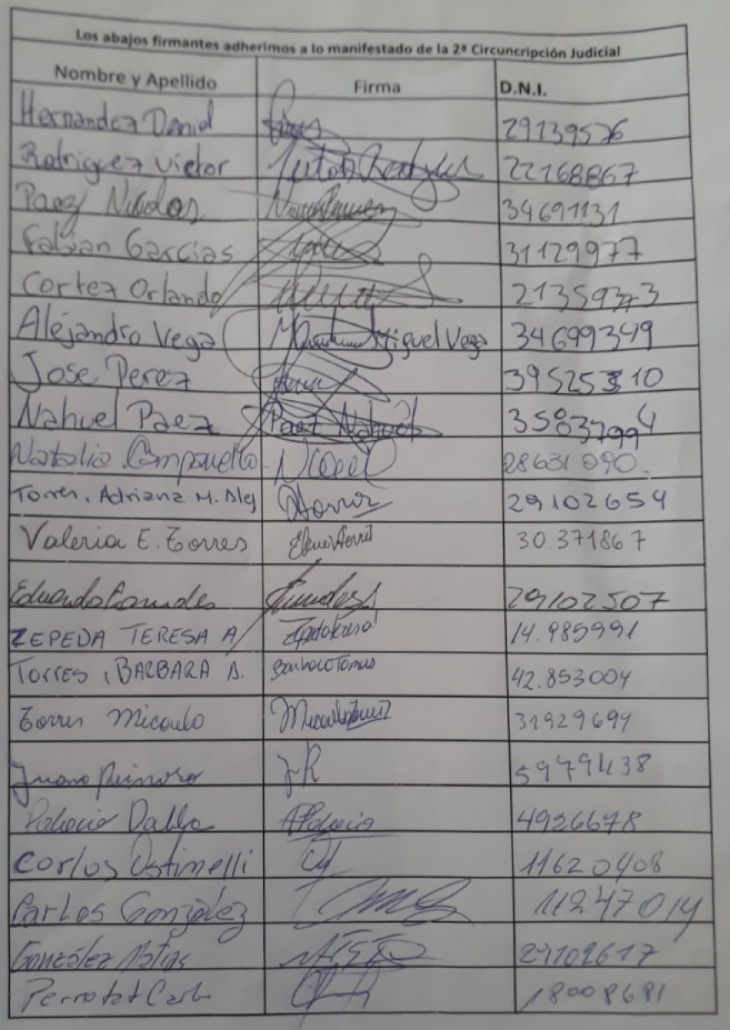 Los abajos firmantes adherimos a lo manifestado de la 2ª Circuncripción Judicial
Nombre y Apellido Firma D.N.I.
Hernandez Daniel 29139576
Rodriguez Victor 22168867
Paez Nicolas 34691131
Fabian Garcias 31129977
Cortez Orlando 21359373
Alejandro Vega Miguel Vega 34699349
Jose Perez 39525310
Nahuel Paez Paez Nahuel 35837994
Natalia 28631090
Torres, Adriana M. Alej 29102654
Valeria E. Torres 30.371867
Eduardo 29102507
ZEPEDA TERESA A 14.985991
Torres, BARBARA A. 42.853004
Torres Micaela 31929694
Juana 5979438
Palacio Dalba 4926678
Carlos Ostinelli 11620408
Carlos González 11247014
González Matias 29102617
Perrotat Carlos 18008681